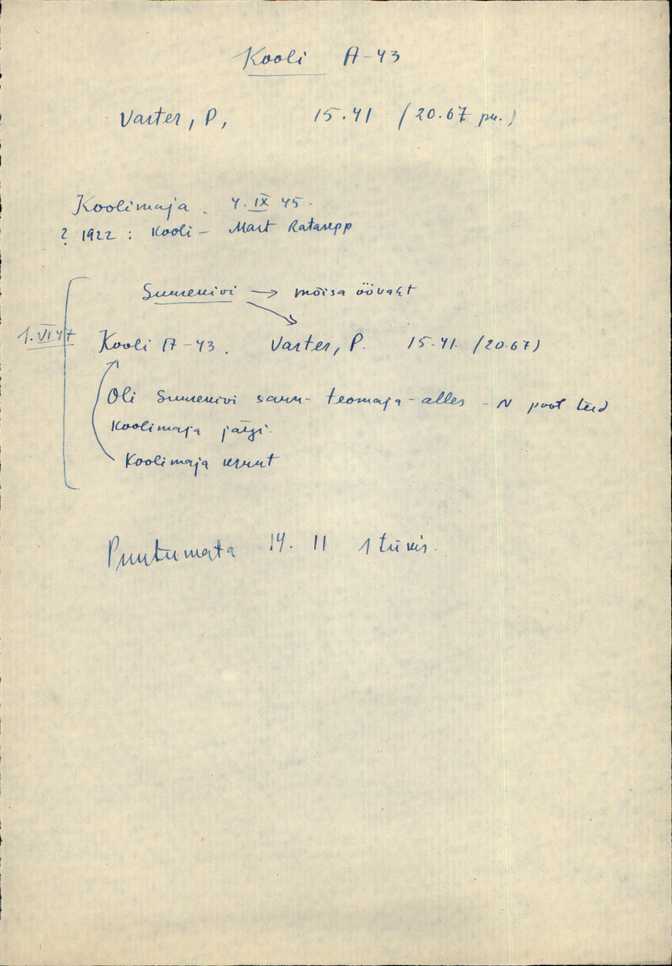 Kooli A-43
Varter, P, 15.41 (20.67 pu.)
Koolimaja. 4. IX 45.
? 1922 : Kooli - Mart Ratasepp
Suurekivi → mõisa öövaht
1. VI 47 Kooli A-43. Varter, P. 15.41 (20.67)
Oli Suurekivi - teomaja - alles - N pool teed
Koolimaja järgi.
Koolimaja
Puutumata 14. II 1 tükis.